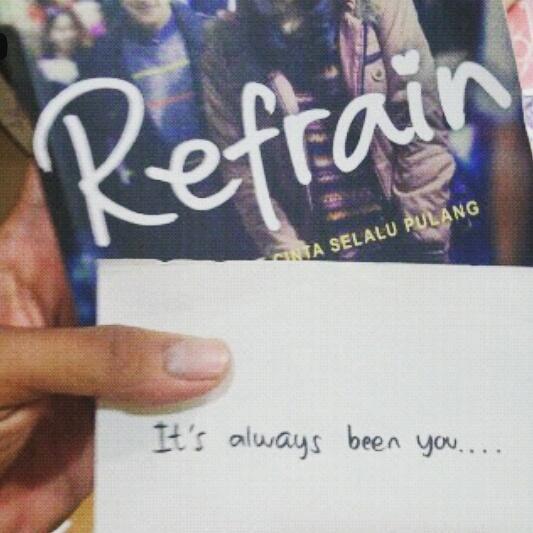 Refrain
CINTA SELALU PULANG
It's always been you....